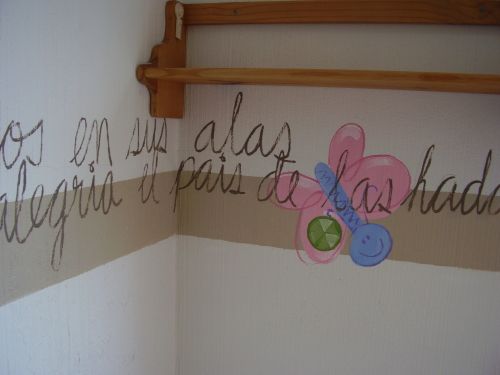 os en sus alas
alegria el pais de las hada